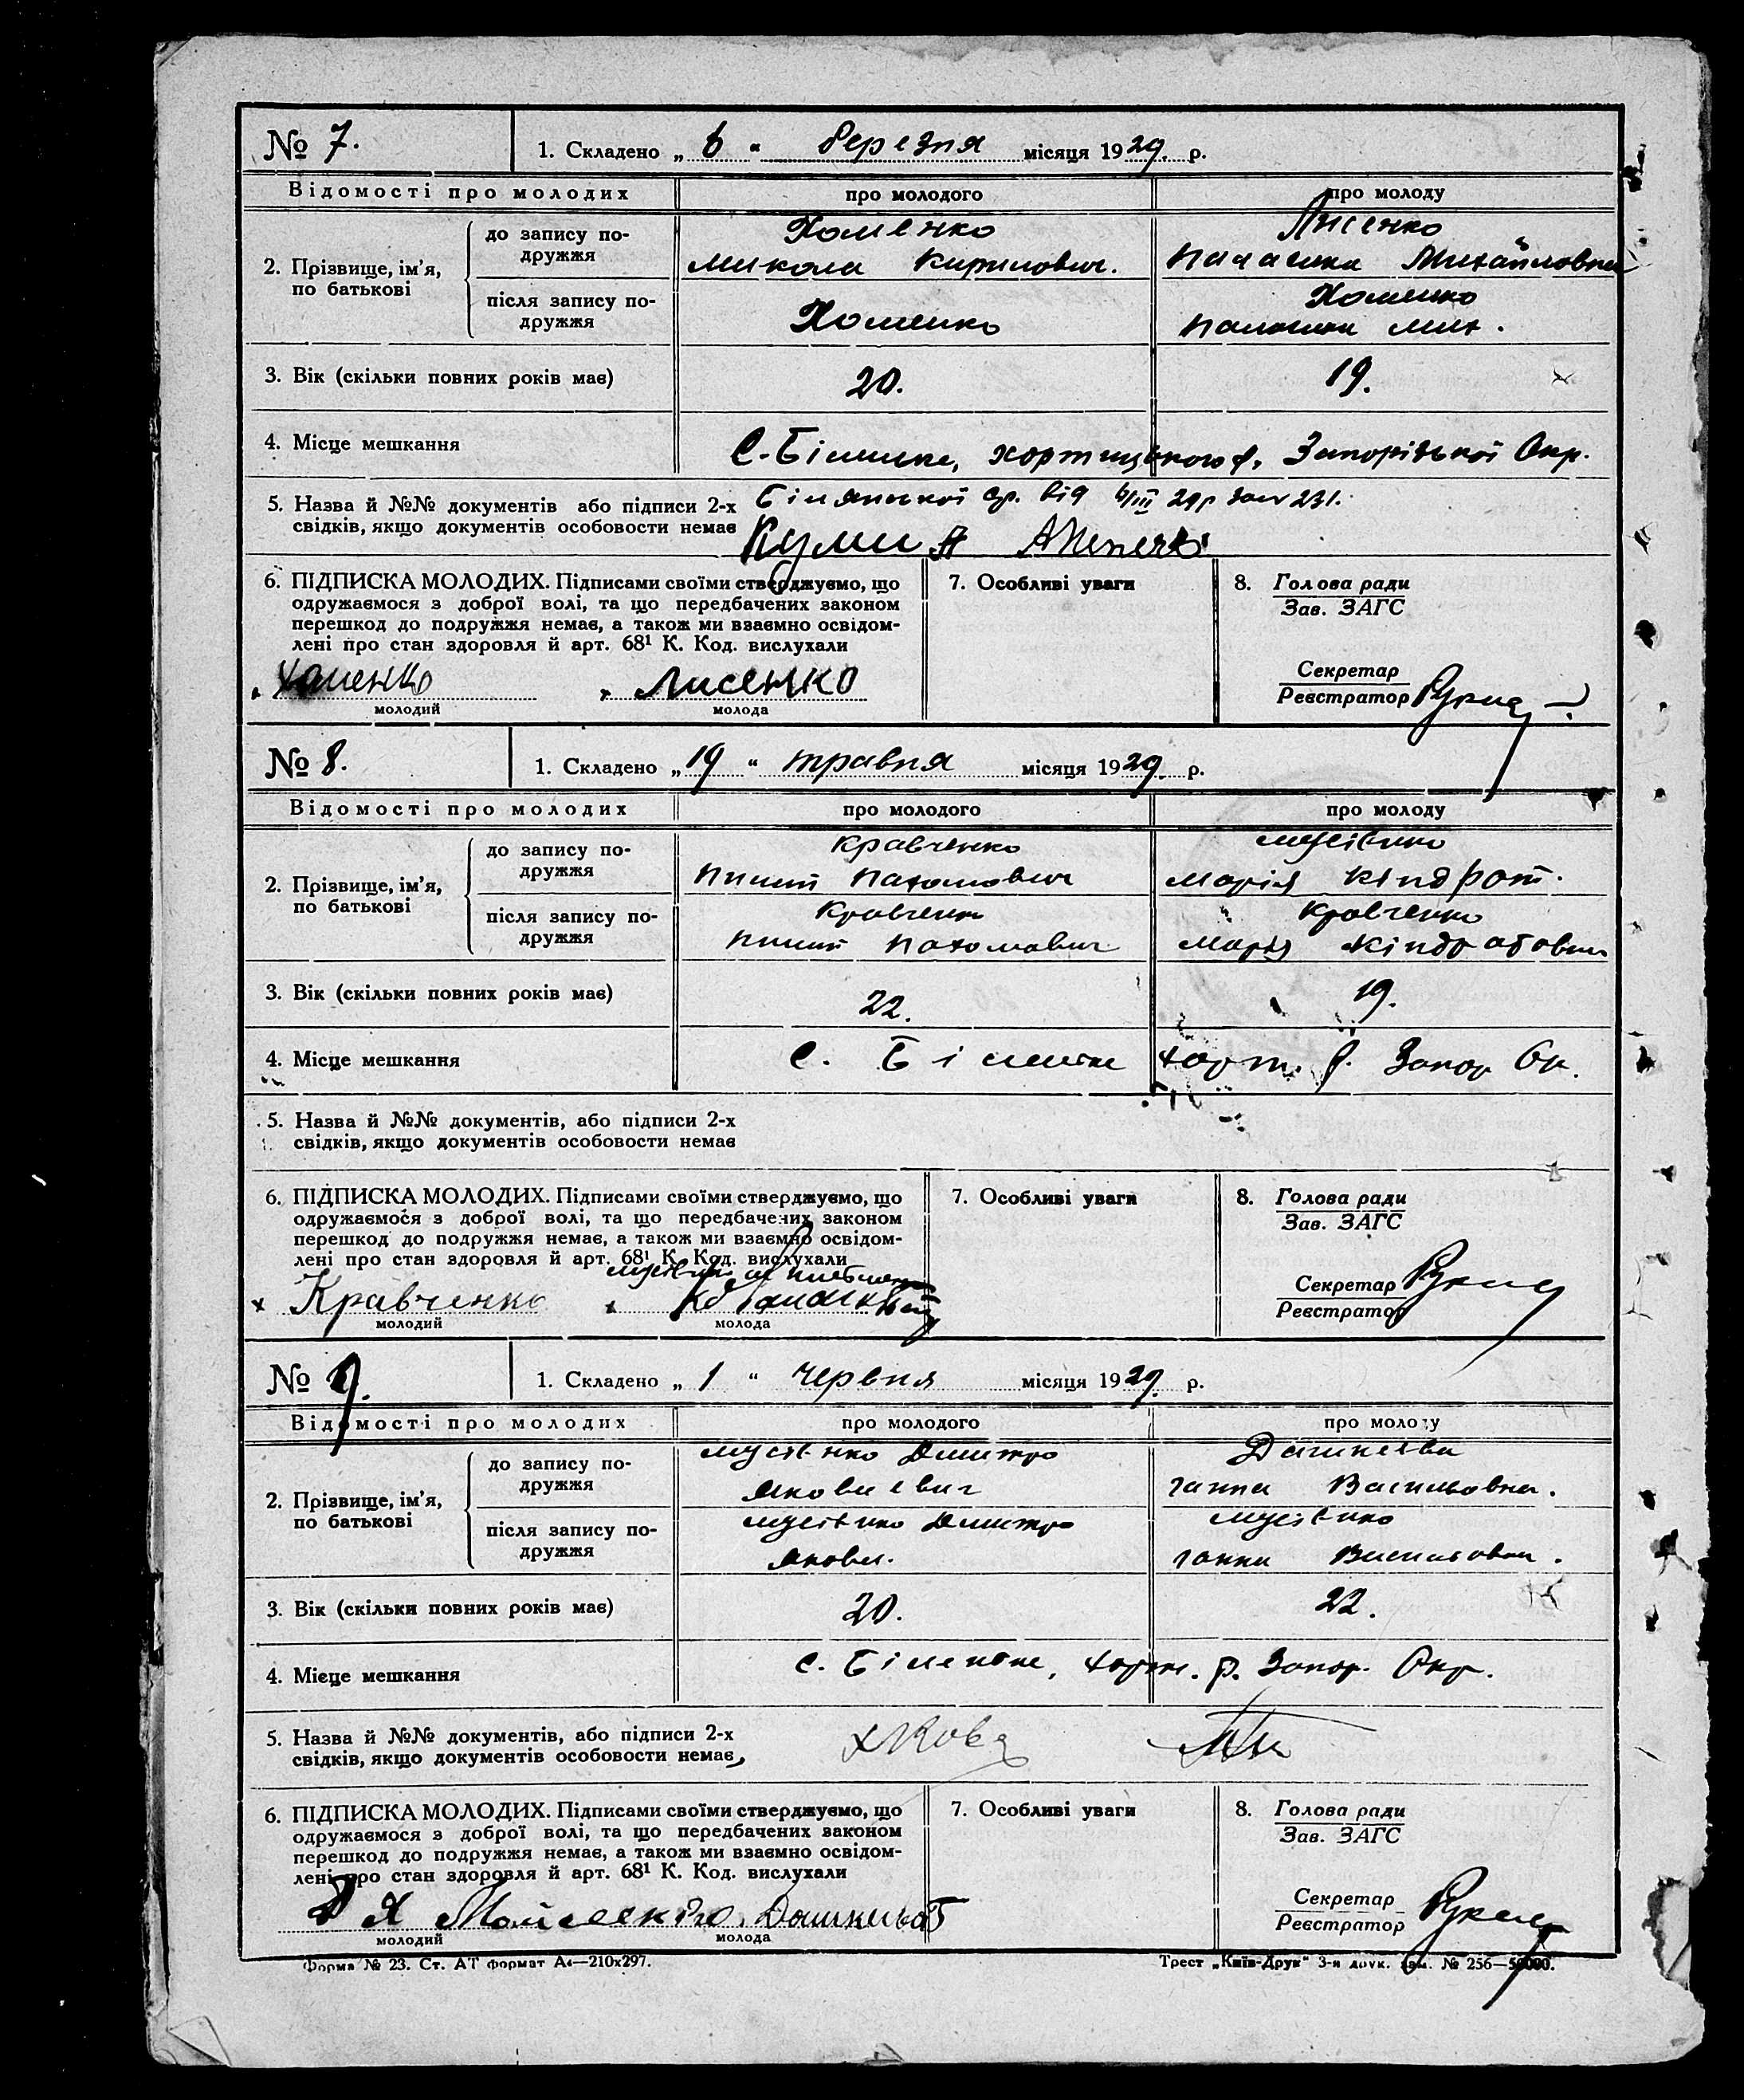 № 7.
1. Складено „ 6 " березня місяця 1929. р.
Відомості про молодих
про молодого
про молоду
2. Прізвище, ім'я, по батькові
до запису по-
дружжя
Хоменко
Микола Кирилович.
Лисенко
Палажка Михайловна
після запису по-
дружжя
Хоменко
Хоменко
Палажка Мих.
3. Вік (скільки повних років має)
20.
19.
4. Місце мешкання
С. Біленьке, Хортицького р. Запорізької Окр.
5. Назва й №№ документів або підписи 2-х
свідків, якщо документів особовости немає
Білянської ср. від 6/III 29р за № 231.
6. ПІДПИСКА МОЛОДИХ. Підписами своїми стверджуємо, що
одружаємося з доброї волі, та що передбачених законом
перешкод до подружжя немає, а також ми взаємно освідом-
лені про стан здоровля й арт. 68¹ К. Код. вислухали
Хоменко
молодий
Лисенко
молода
7. Особливі уваги
8. Голова ради
Зав. ЗАГС
Секретар
Реєстратор
№ 8.
1. Складено „ 19 " травня місяця 1929. р.
Відомості про молодих
про молодого
про молоду
2. Прізвище, ім'я, по батькові
до запису по-
дружжя
Кравченко
Пилип Пахомович
Мусієнко
Марія Кіндрат.
після запису по-
дружжя
Кравченко
Пилип Пахомович
Кравченко
Марія Кіндратовна
3. Вік (скільки повних років має)
22.
19.
4. Місце мешкання
С. Біленьке Хорт. р. Запор Ок.
5. Назва й №№ документів, або підписи 2-х
свідків, якщо документів особовости немає
6. ПІДПИСКА МОЛОДИХ. Підписами своїми стверджуємо, що
одружаємося з доброї волі, та що передбачених законом
перешкод до подружжя немає, а також ми взаємно освідом-
лені про стан здоровля й арт. 68¹ К. Код. вислухали
Кравченко
молодий
молода
7. Особливі уваги
8. Голова ради
Зав. ЗАГС
Секретар
Реєстратор
№ 9.
1. Складено „ 1 " червня місяця 1929. р.
Відомості про молодих
про молодого
про молоду
2. Прізвище, ім'я, по батькові
до запису по-
дружжя
Мусієнко Дмитро
Якович
Дашкеева
Ганна Васильовна.
після запису по-
дружжя
Мусієнко Дмитро
Яков.
Мусієнко
Ганна Васильовна.
3. Вік (скільки повних років має)
20.
22.
4. Місце мешкання
с. Біленьке, Хорт. р. Запор. Окр.
5. Назва й №№ документів, або підписи 2-х
свідків, якщо документів особовости немає
6. ПІДПИСКА МОЛОДИХ. Підписами своїми стверджуємо, що
одружаємося з доброї волі, та що передбачених законом
перешкод до подружжя немає, а також ми взаємно освідом-
лені про стан здоровля й арт. 68¹ К. Код. вислухали
молодий
молода
7. Особливі уваги
8. Голова ради
Зав. ЗАГС
Секретар
Реєстратор
Форма № 23. Ст. АТ формат А4—210х297.
Трест „Київ-Друк" 3-я друк. Зам. № 256—50000.